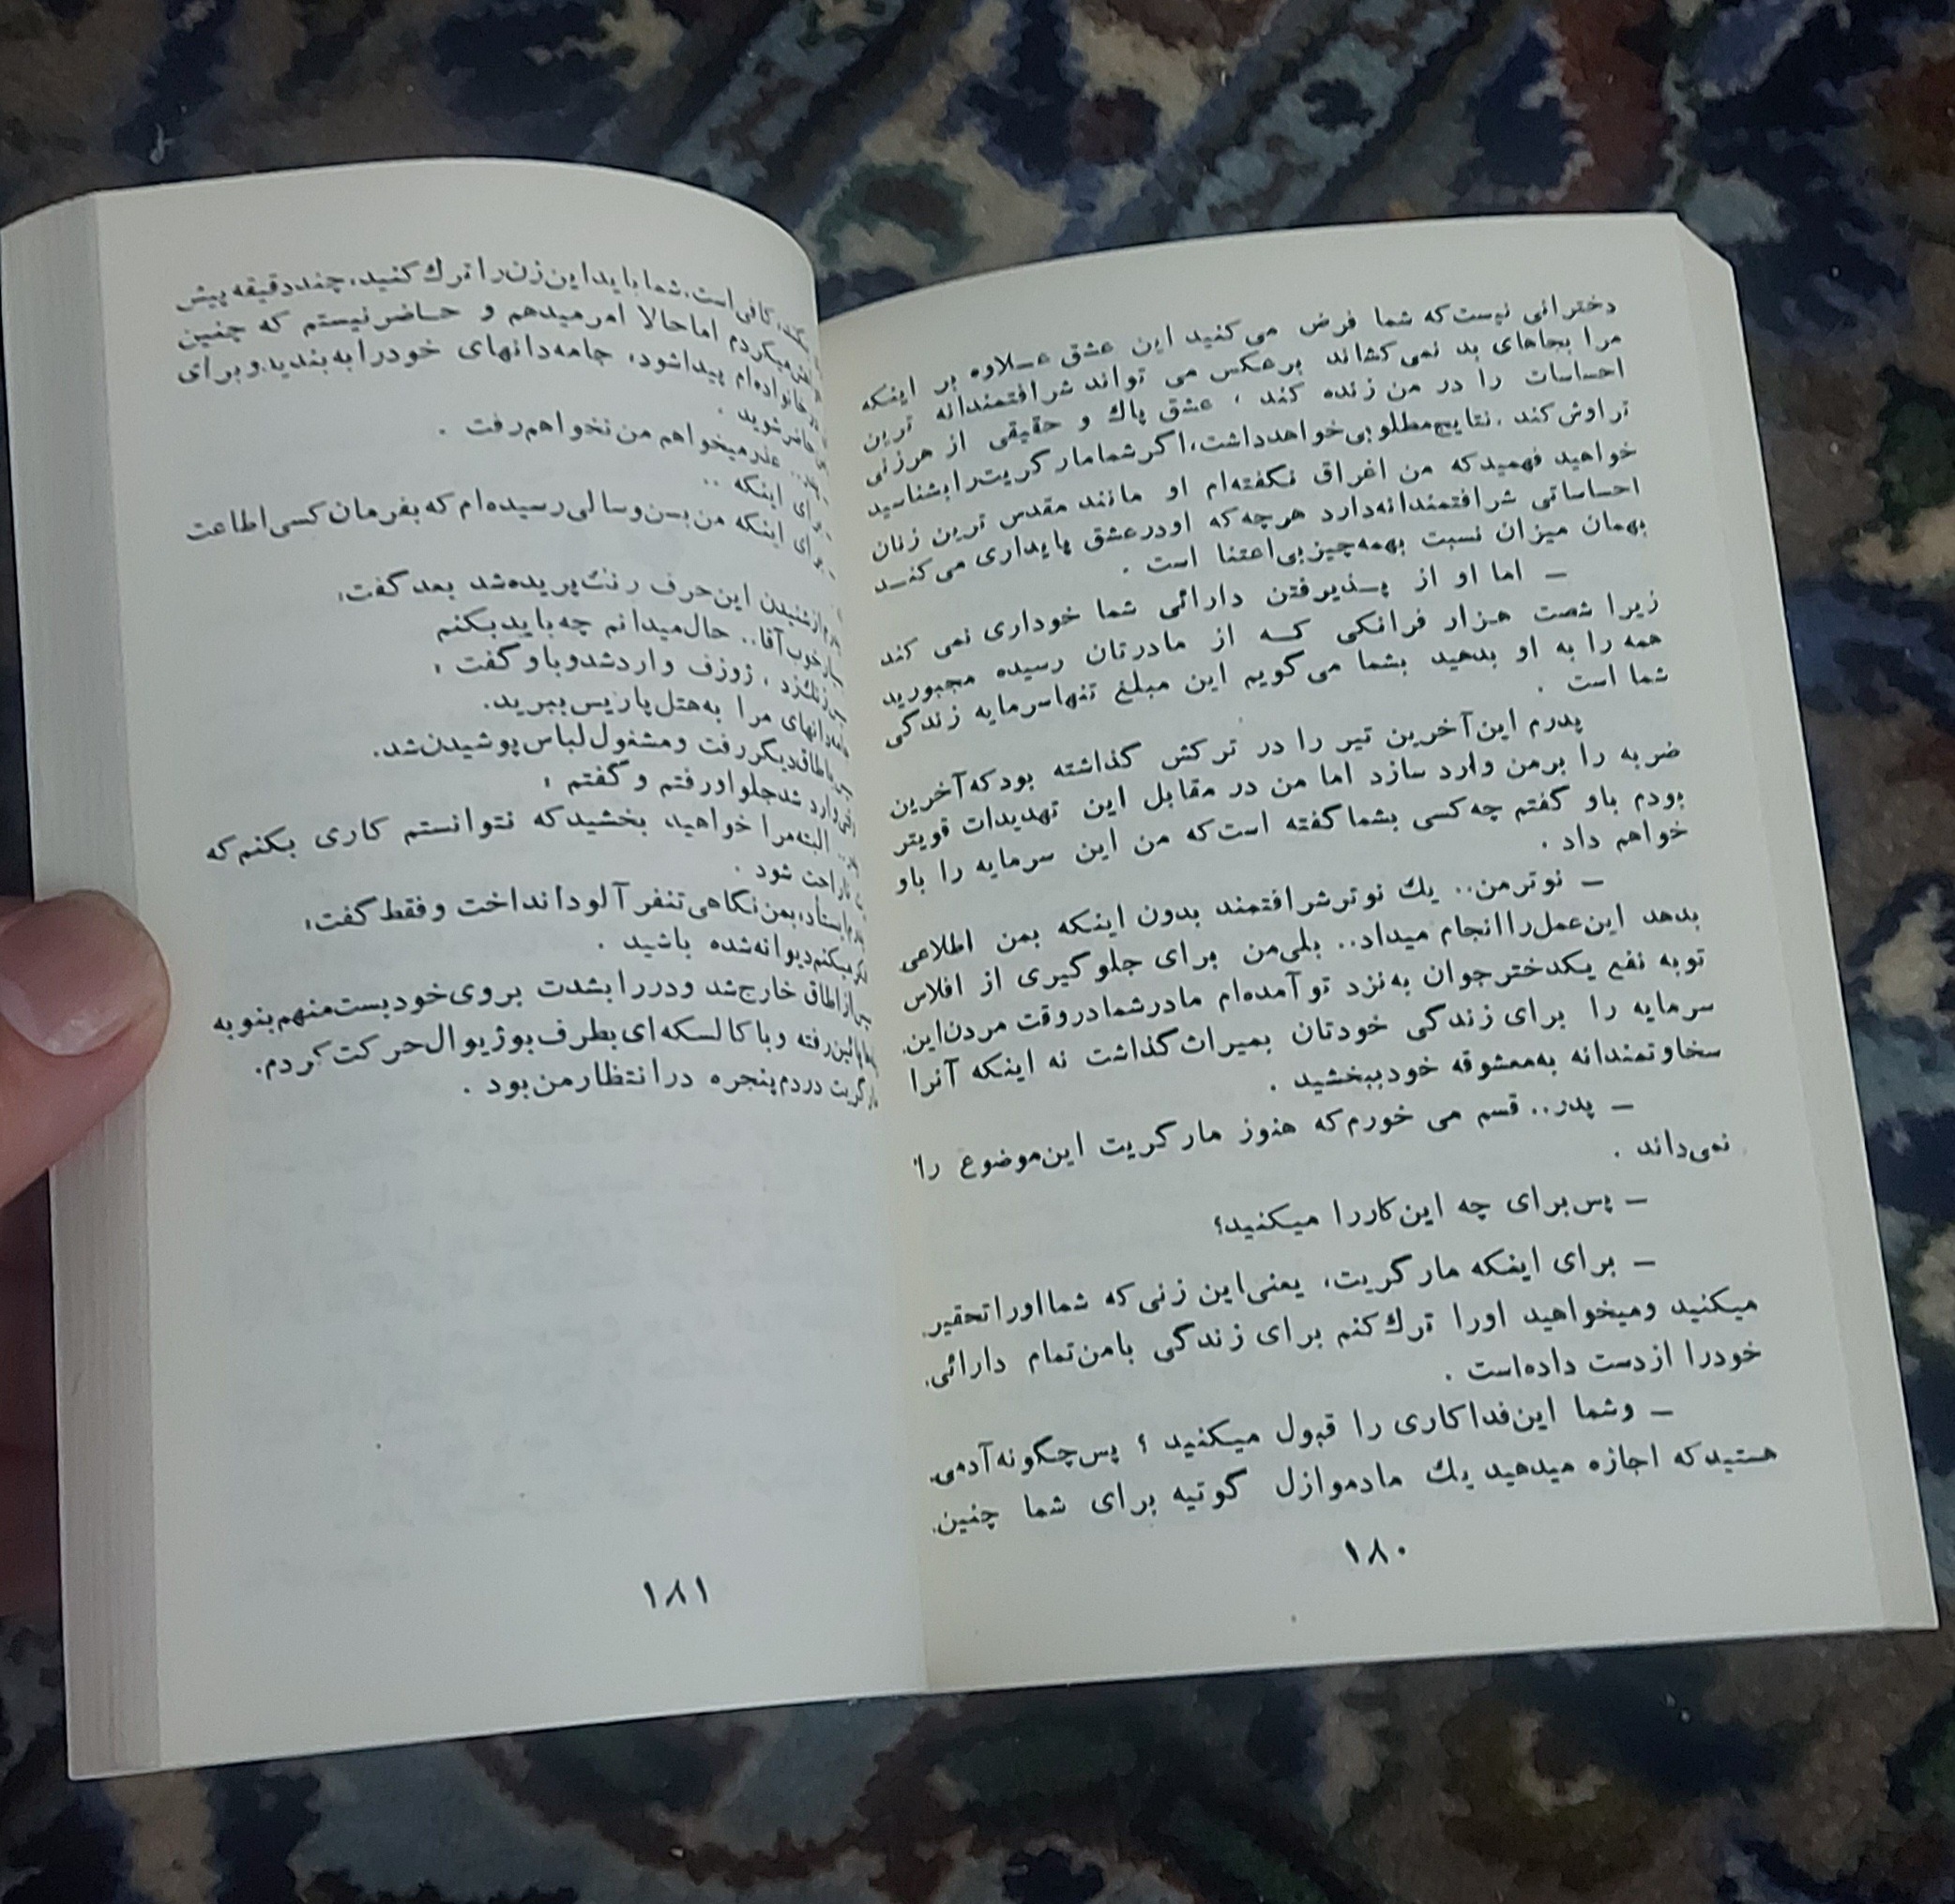 دخترانی نیست که شما فرض می کنید این عشق عـلاوه بر اینکه
مرا بجاهای بد نمی کشاند برعکس می تواند شرافتمندانه ترین
احساسات را در من زنده کند ، عشق پاك و حقیقی از هرزنی
تراوش کند . نتایج مطلوبی خواهد داشت، اگر شما مارگریت را بشناسید
خواهید فهمید که من اغراق نگفته‌ام او مانند مقدس ترین زنان
احساساتی شرافتمندانه دارد هرچه که او در عشق پایداری می کنـد
بهمان میزان نسبت بهمه چیز بی اعتنا است .
ـ اما او از پـذیرفتن دارائی شما خودداری نمی کند
زیرا شصت هزار فرانکی کـه از مادرتان رسیده مجبورید
همه را به او بدهید بشما می گویم این مبلغ تنها سرمایه زندگی
شما است .
پدرم این آخرین تیر را در ترکش گذاشته بود که آخرین
ضربه را برمن وارد سازد اما من در مقابل این تهدیدات قویتر
بودم باو گفتم چه کسی بشما گفته است که من این سرمایه را باو
خواهم داد .
ـ نوتر من.. یك نوتر شرافتمند بدون اینکه بمن اطلاعی
بدهد این عمل را انجام میداد.. بلی من برای جلوگیری از افلاس
تو به نفع یکدختر جوان به نزد تو آمده‌ام مادر شما در وقت مردن این
سرمایه را برای زندگی خودتان بمیراث گذاشت نه اینکه آنرا
سخاوتمندانه به معشوقه خود ببخشید .
ـ پدر.. قسم می خورم که هنوز مارگریت این موضوع را
نمی داند .
ـ پس برای چه این کار را میکنید؟
ـ برای اینکه مارگریت، یعنی این زنی که شما اورا تحقیر
میکنید و میخواهید اورا ترك کنم برای زندگی بامن تمام دارائی
خودرا از دست داده است .
ـ وشما این فداکاری را قبول میکنید ؟ پس چگونه آدمی
هستید که اجازه میدهید یك مادموازل گوتیه برای شما چنین
۱۸۰
بکند، کافی است، شما باید این زن را ترك کنید، چند دقیقه پیش
میکردم اما حالا امر میدهم و حـاضر نیستم که چنین
خانواده‌ام پیدا شود، جامه دانهای خودرا به بندید و برای
حاضر شوید .
عذر میخواهم من نخواهم رفت .
برای اینکه ..
برای اینکه من بسن و سالی رسیده‌ام که بفرمان کسی اطاعت
از شنیدن این حرف رنگ پریده شد بعد گفت:
خوب آقا.. حال میدانم چه باید بکنم
زنك زد ، ژوزف وارد شد و باو گفت :
دانهای مرا به هتل پاریس ببرید.
باطاق دیگر رفت و مشغول لباس پوشیدن شد.
وارد شد جلو او رفتم و گفتم :
البته مرا خواهید بخشید که نتوانستم کاری بکنم که
ناراحت شود .
ایستاد، بمن نگاهی تنفر آلود انداخت و فقط گفت:
میکنم دیوانه شده باشید .
از اطاق خارج شد و در را بشدت بروی خود بست منهم بنوبه
پائین رفته و با کالسکه ای بطرف بوژیوال حرکت کردم.
مارگریت در دم پنجره در انتظار من بود .
۱۸۱